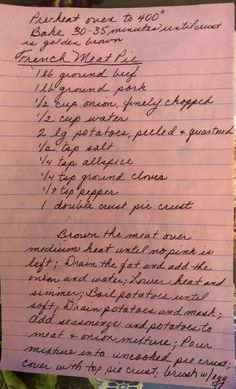 Preheat oven to 400°
Bake 30-35 minutes, until crust
is golden brown
French Meat Pie
1 lb ground beef
1 lb ground pork
1/2 cup onion, finely chopped
1/2 cup water
2 lg potatoes, peeled + quartered
1/2 tsp salt
1/4 tsp allspice
1/4 tsp ground cloves
1/8 tsp pepper
1 double crust pie crust
Brown the meat over
medium heat until no pink is
left; Drain the fat and add the
onion and water; Lower heat and
simmer; Boil potatoes until
soft; Drain potatoes and mash;
Add seasonings and potatoes to
meat + onion mixture; Pour
mixture into uncooked pie crust;
cover with top pie crust, brush w/egg